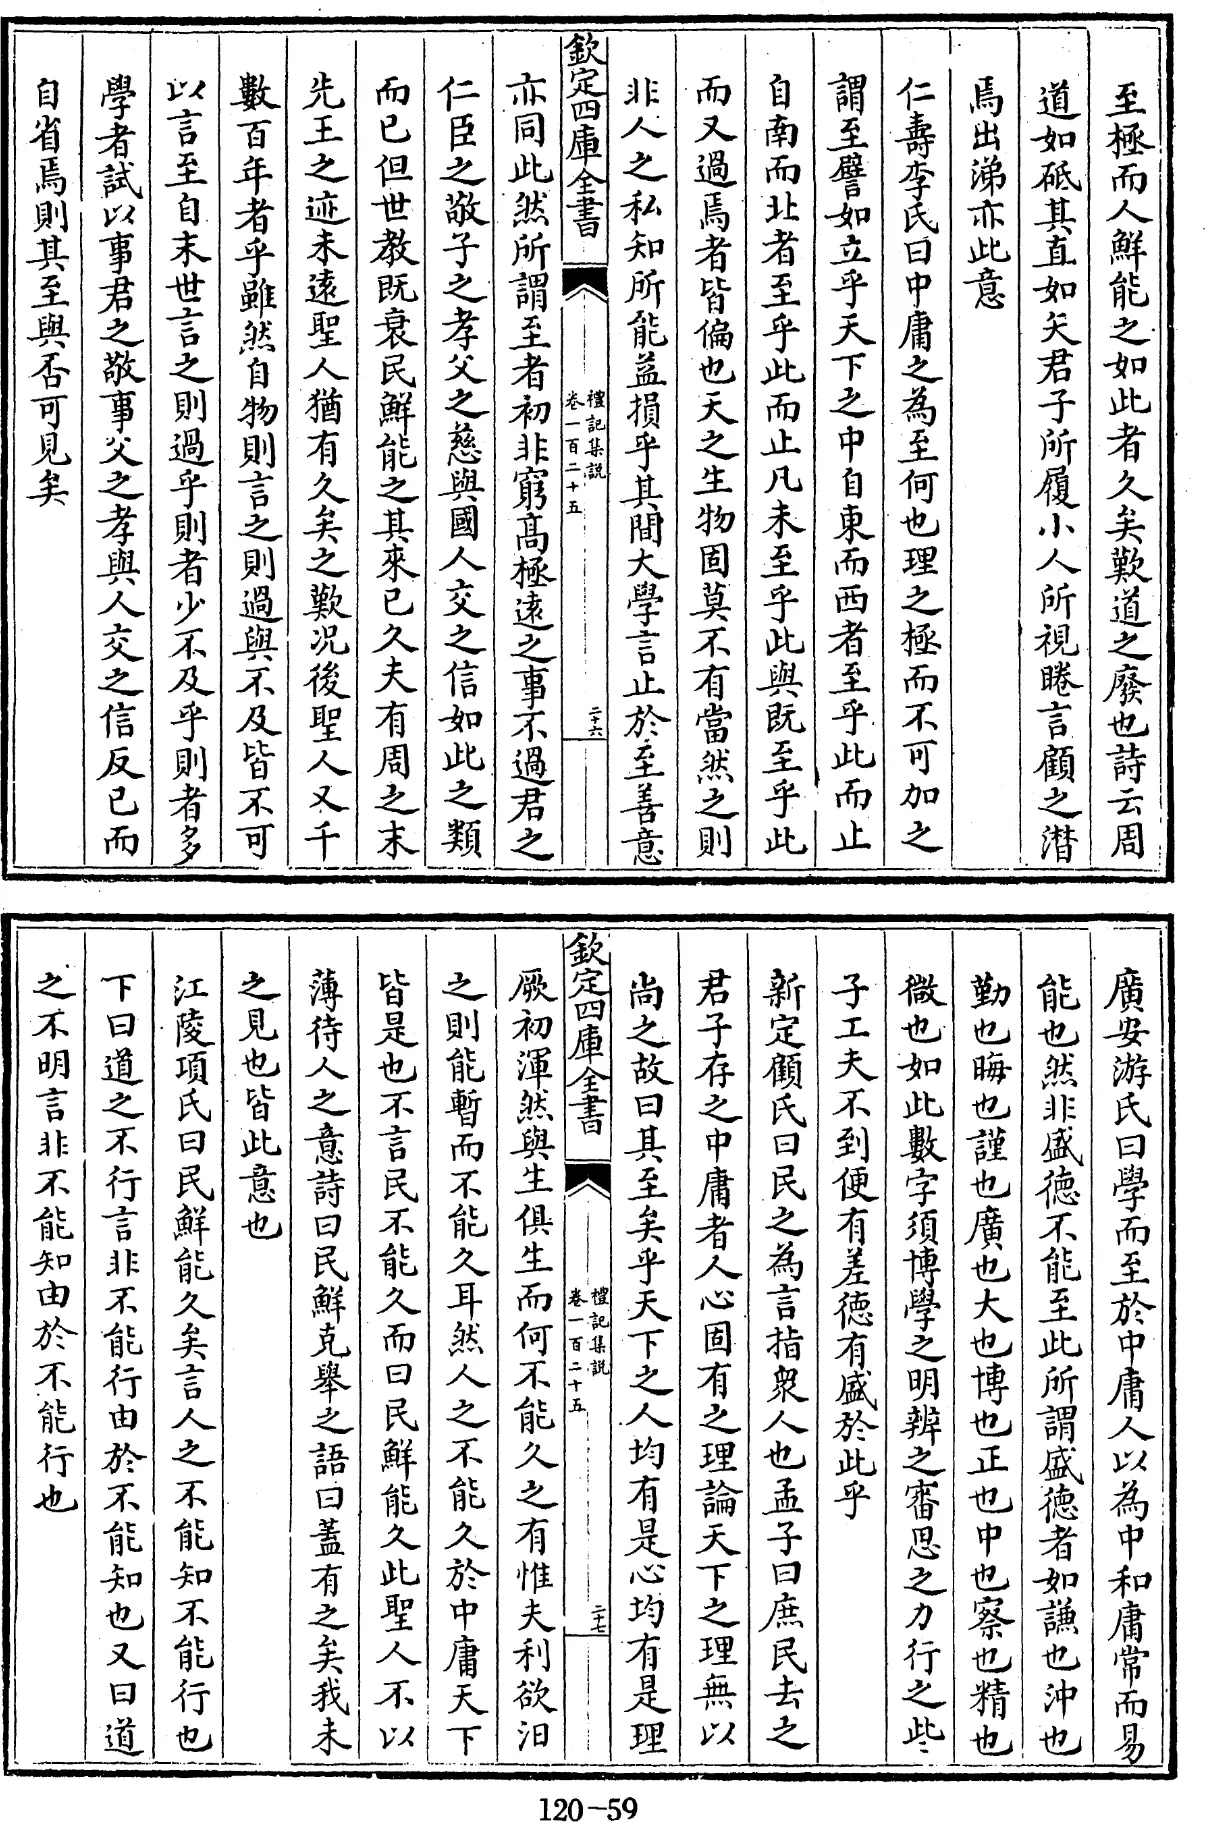 至極而人鮮能之如此者久矣歎道之廢也詩云周
道如砥其直如矢君子所履小人所視睠言顧之潸
焉出涕亦此意
仁壽李氏曰中庸之為至何也理之極而不可加之
謂至譬如立乎天下之中自東而西者至乎此而止
自南而北者至乎此而止凡未至乎此與既至乎此
而又過焉者皆偏也天之生物固莫不有當然之則
非人之私知所能益損乎其間大學言止於至善意
欽定四庫全書
禮記集説
卷一百二十五
二十六
亦同此然所謂至者初非窮髙極逺之事不過君之
仁臣之敬子之孝父之慈與國人交之信如此之類
而已但世教既衰民鮮能之其來已久夫有周之末
先王之迹未逺聖人猶有久矣之歎况後聖人又千
數百年者乎雖然自物則言之則過與不及皆不可
以言至自末世言之則過乎則者少不及乎則者多
學者試以事君之敬事父之孝與人交之信反已而
自省焉則其至與否可見矣
廣安游氏曰學而至於中庸人以為中和庸常而易
能也然非盛德不能至此所謂盛德者如謙也沖也
勤也晦也謹也廣也大也博也正也中也察也精也
微也如此數字須博學之明辨之審思之力行之此
子工夫不到便有差德有盛於此乎
新定顧氏曰民之為言指衆人也孟子曰庶民去之
君子存之中庸者人心固有之理論天下之理無以
尚之故曰其至矣乎天下之人均有是心均有是理
欽定四庫全書
禮記集説
卷一百二十五
二十七
厥初渾然與生俱生而何不能久之有惟夫利欲汩
之則能暫而不能久耳然人之不能久於中庸天下
皆是也不言民不能久而曰民鮮能久此聖人不以
薄待人之意詩曰民鮮克舉之語曰蓋有之矣我未
之見也皆此意也
江陵項氏曰民鮮能久矣言人之不能知不能行也
下曰道之不行言非不能行由於不能知也又曰道
之不明言非不能知由於不能行也
120-59